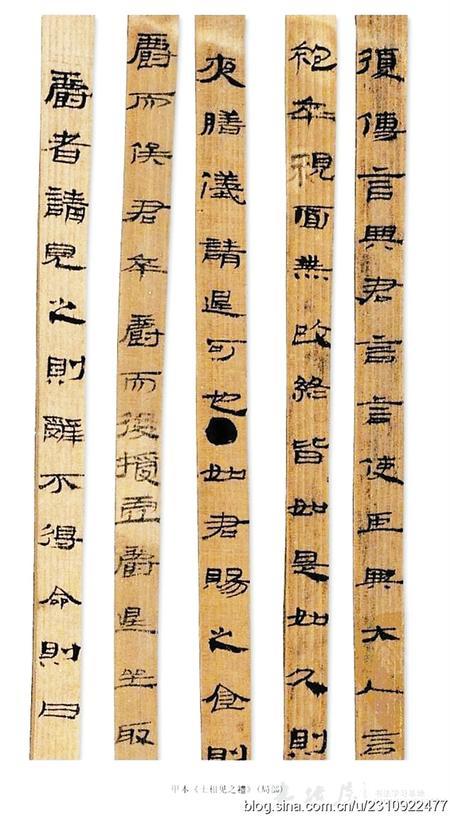 後傳言與君言言使臣與大人言
抱卒視面無改終皆如是如父則
夜膳儀請退可也●如君賜之食則
爵而俟君卒爵而後授虛爵退坐取
爵者請見之則辭不得命則曰
甲本《士相见之禮》(局部)
书法学习基地
blog.sina.com.cn/u/2310922477